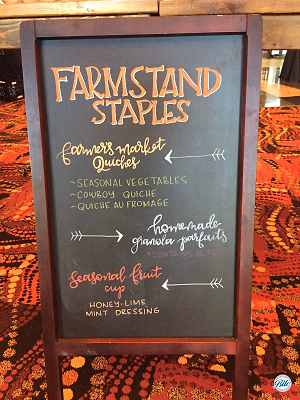 FARMSTAND
STAPLES
farmers market
Quiches
~SEASONAL VEGETABLES
~COWBOY QUICHE
~QUICHE AU FROMAGE
homemade
granola parfaits
*CONTAINS NUTS
Seasonal fruit
cup
HONEY-LIME
MINT DRESSING